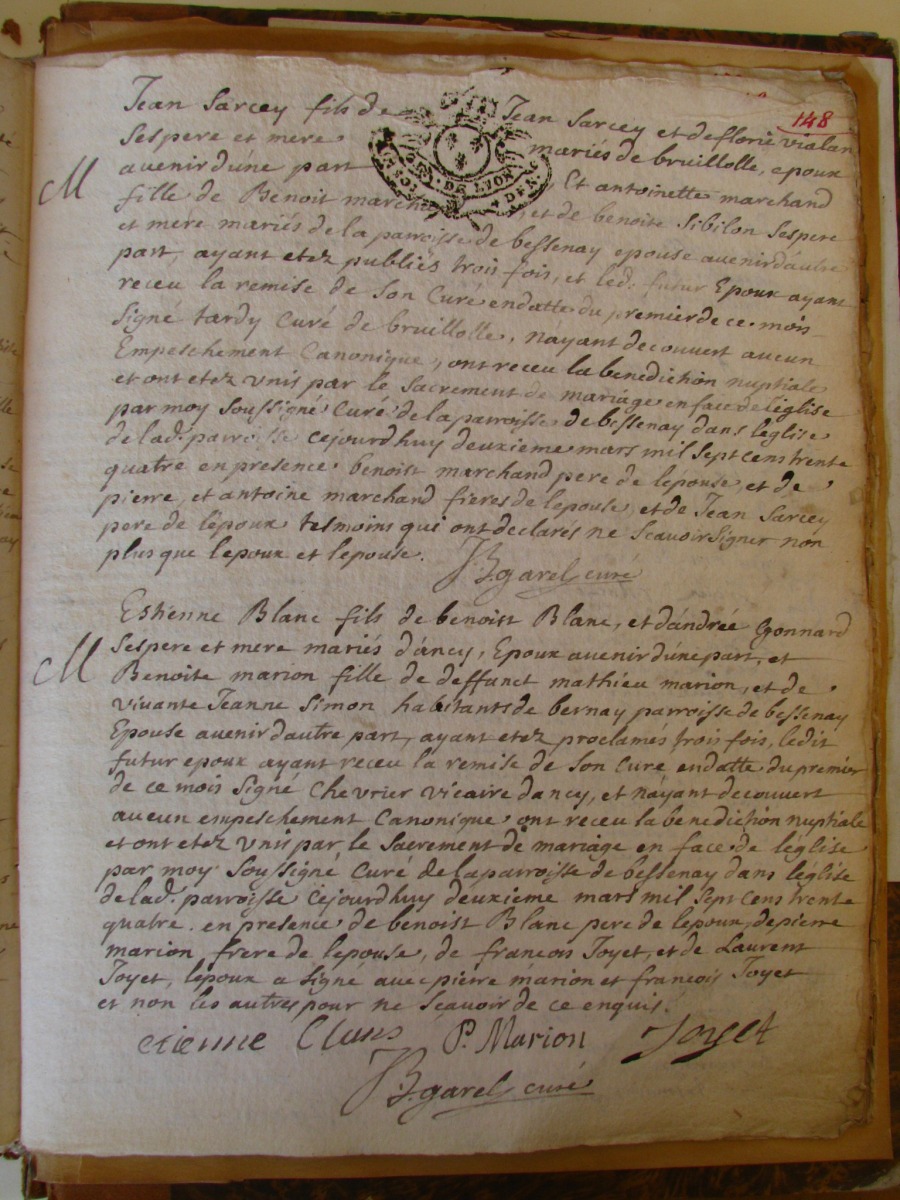 148
Jean Sarcey fils de Jean Sarcey et de florie vialan
Ses pere et mere mariés de bruillolle, epoux
M
avenir dúne part Et antoinette marchand
fille de Benoit march , et de benoite Sibilon Ses pere
et mere mariés de la parroisse de bessenay epouse avenir dáutre
part, ayant etez publiés trois fois, et led. futur Epoux ayant
receu la remise de Son Curé en datte du premier de ce mois
Signé tardy Curé de bruillolle, náyant decouvert aucun
Empeschement Canonique, ont receu la benediction nuptiale
et ont etez vnis par le Sacrement de mariage en face de léglise
par moy Soussigné Curé de la parroisse de bessenay dans léglise
de lad. parroisse cejourdhuy deuxieme mars mil Sept cens trente
quatre en presence benoist marchand pere de lépouse, et de
pierre, et antoine marchand freres de lepouse, et de Jean Sarcey
pere de lépoux tesmoins qui ont declarés ne Scavoir Signer non
plus que lepoux et lepouse.
JB. garel curé
Estienne Blanc fils de benoist Blanc, et dándrée Gonnard
Ses pere et mere mariés dáncy, Epoux avenir dúne part, et
M
Benoite marion fille de deffunct mathieu marion, et de
vivante Jeanne Simon habitants de bernay parroisse de bessenay
Epouse avenir dautre part, ayant etez proclamés trois fois, ledit
futur epoux ayant receu la remise de Son Curé en datte du premier
de ce mois Signé Chevrier vicaire dancy, et náyant decouvert
aucun empeschement Canonique ont receu la benediction nuptiale
et ont etez vnis par le Sacrement de mariage en face de léglise
par moy Soussigné Curé de la parroisse de bessenay dans léglise
de lad. parroisse cejourdhuy deuxieme mars mil Sept cens trente
quatre. en presence de benoist Blanc pere de lepoux, de pierre
marion frere de lepouse, de francois Joyet, et de Laurent
Joyet, lepoux a Signé avec pierre marion et francois Joyet
et non les autres pour ne Scavoir de ce enquis.
etienne P. Marion Joyet
JB. garel curé